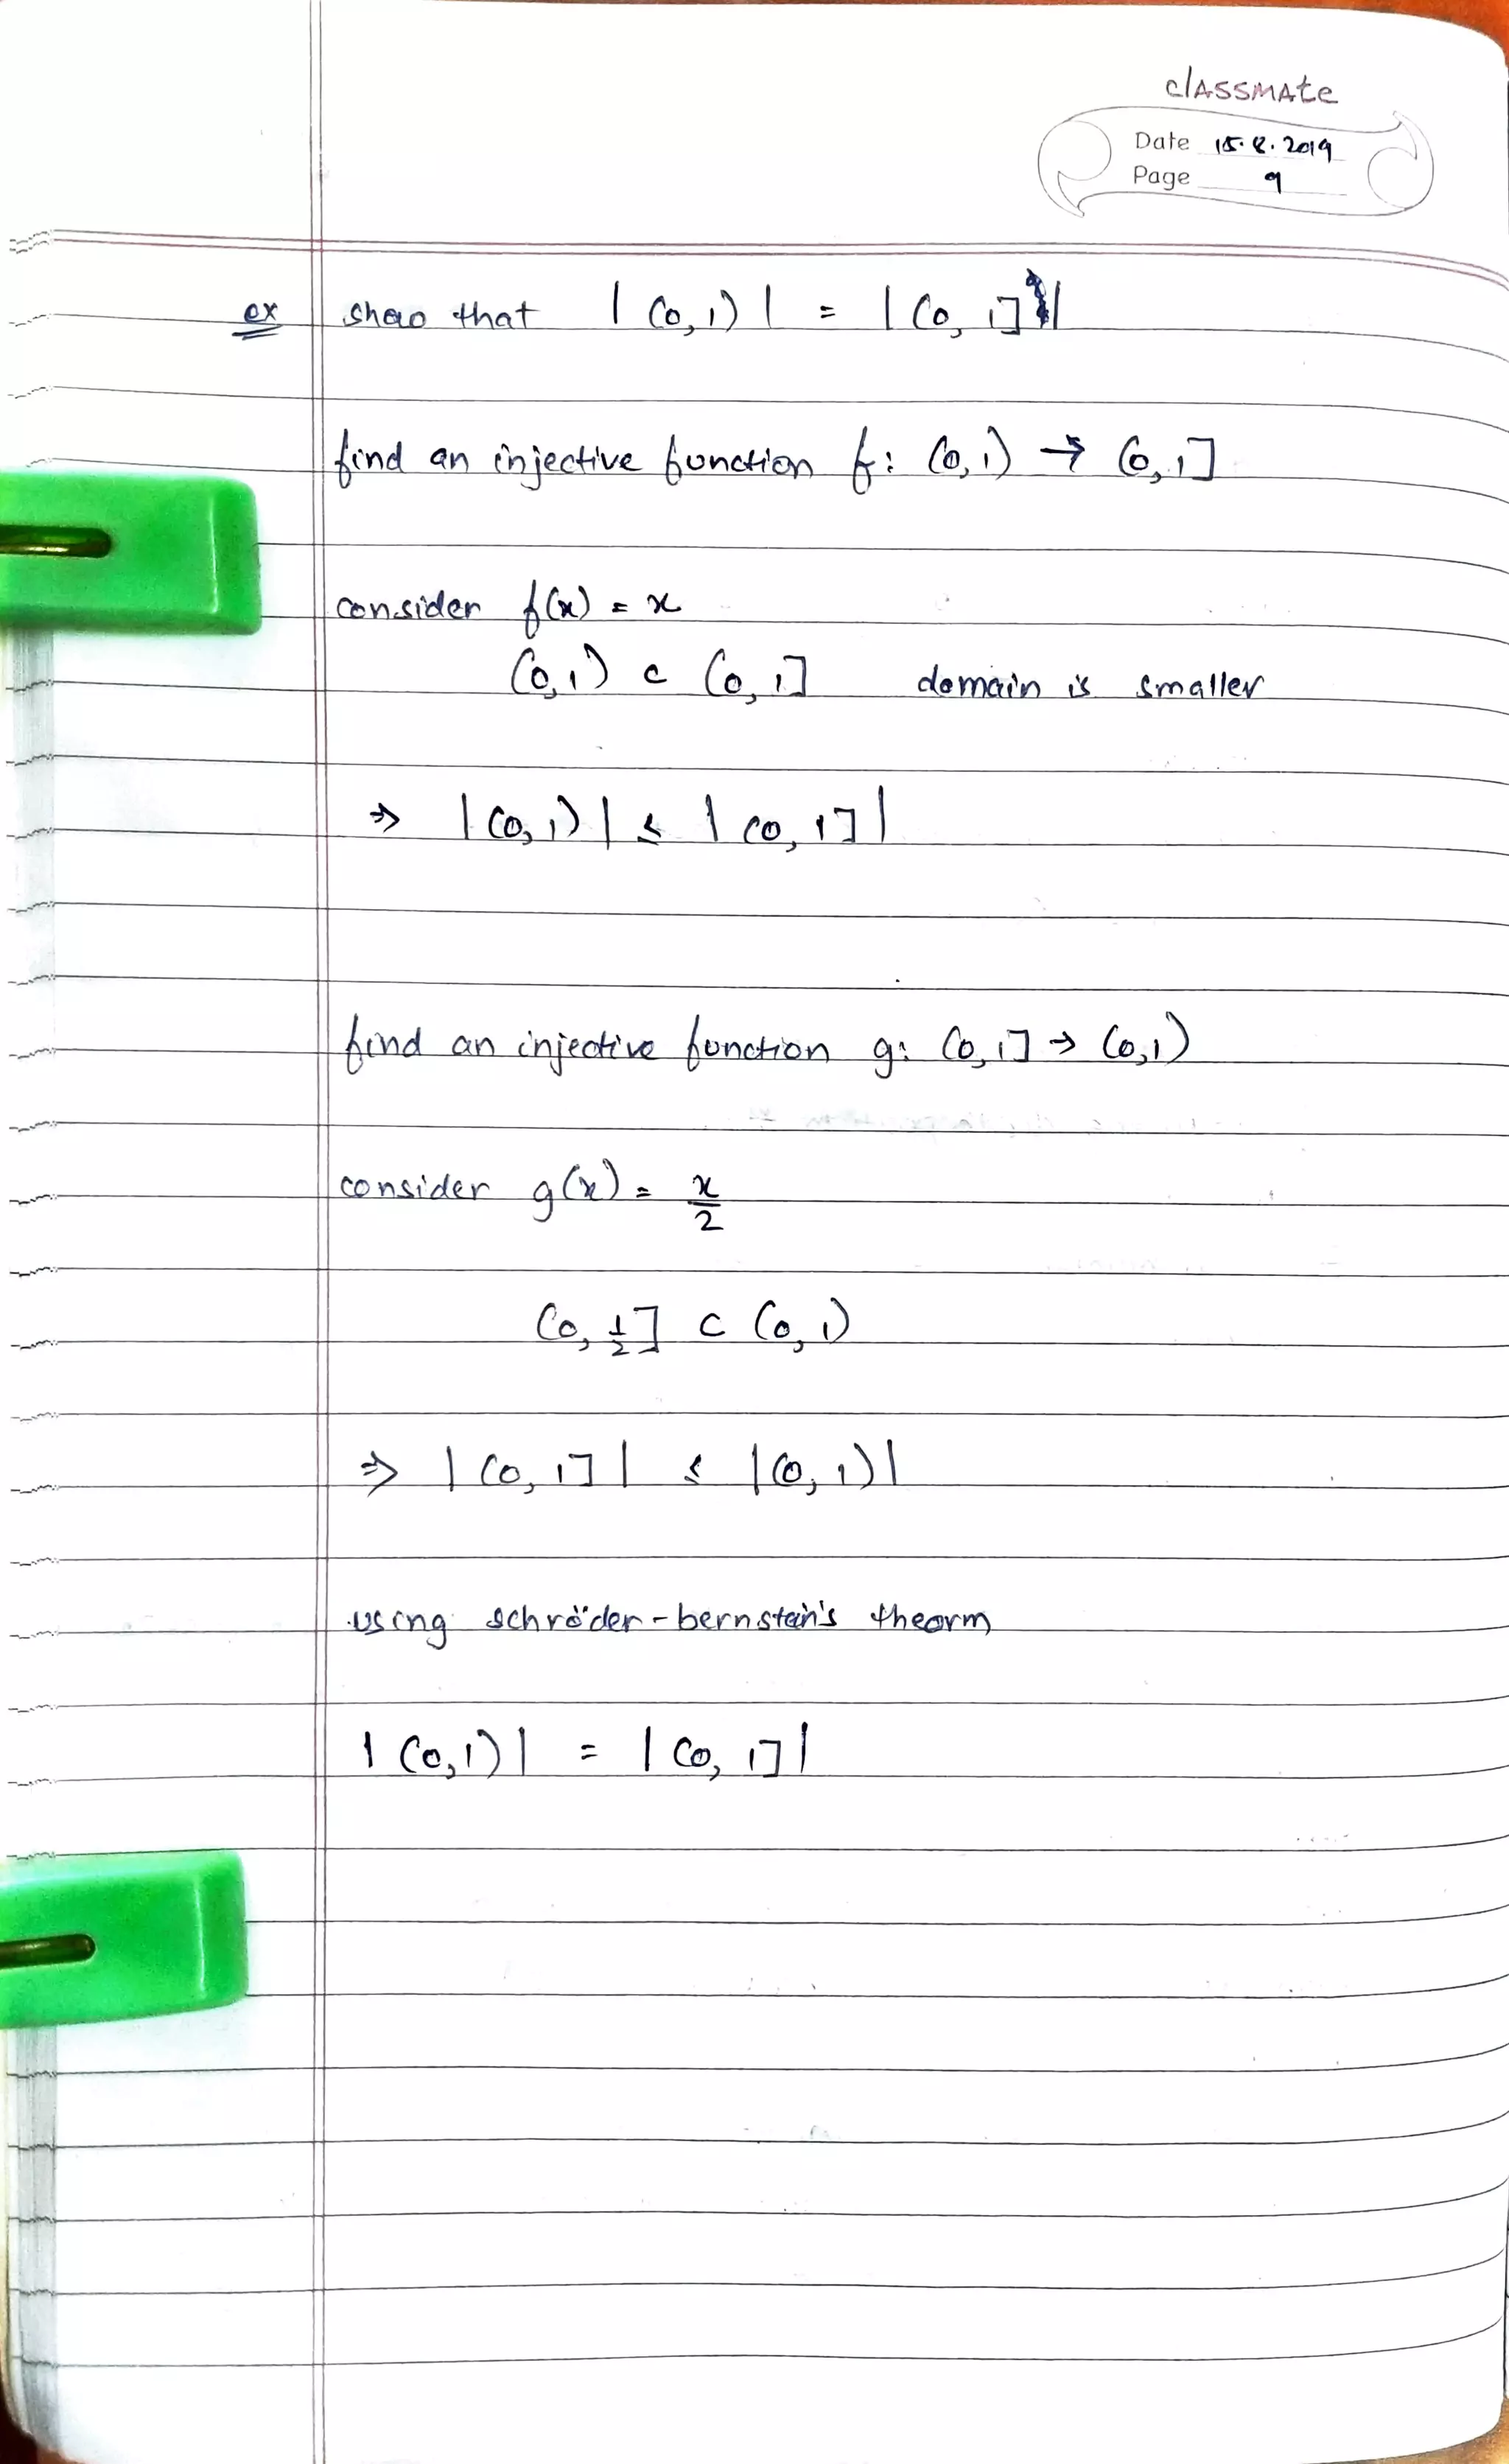 classmate
Date 15.8.2019
Page 9
ex show that |(0,1)| = |(0,1]|
find an injective function f: (0,1) → (0,1]
consider f(x) = x
(0,1) ⊂ (0,1] domain is smaller
⇒ |(0,1)| ≤ |(0,1]|
find an injective function g: (0,1] → (0,1)
consider g(x) = x/2
(0, 1/2] ⊂ (0,1)
⇒ |(0,1]| ≤ |(0,1)|
using schröder-bernstein's theorm
|(0,1)| = |(0,1]|